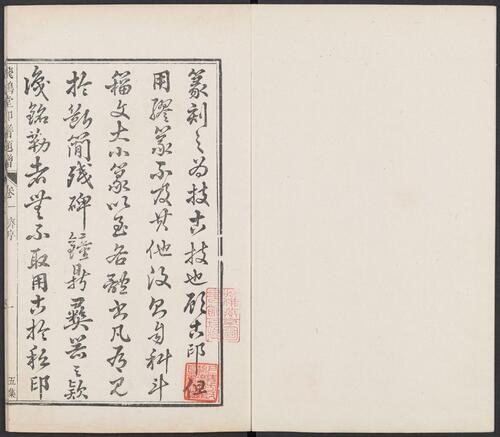 篆刻之為技古技也顧古印但
用繆篆不及其他後乃自科斗
籀文大小篆以至各體書凡有見
於斷簡殘碑鐘鼎彝器之款
識銘勒者無不取用古於私印
飛鴻堂印譜
卷一
五集